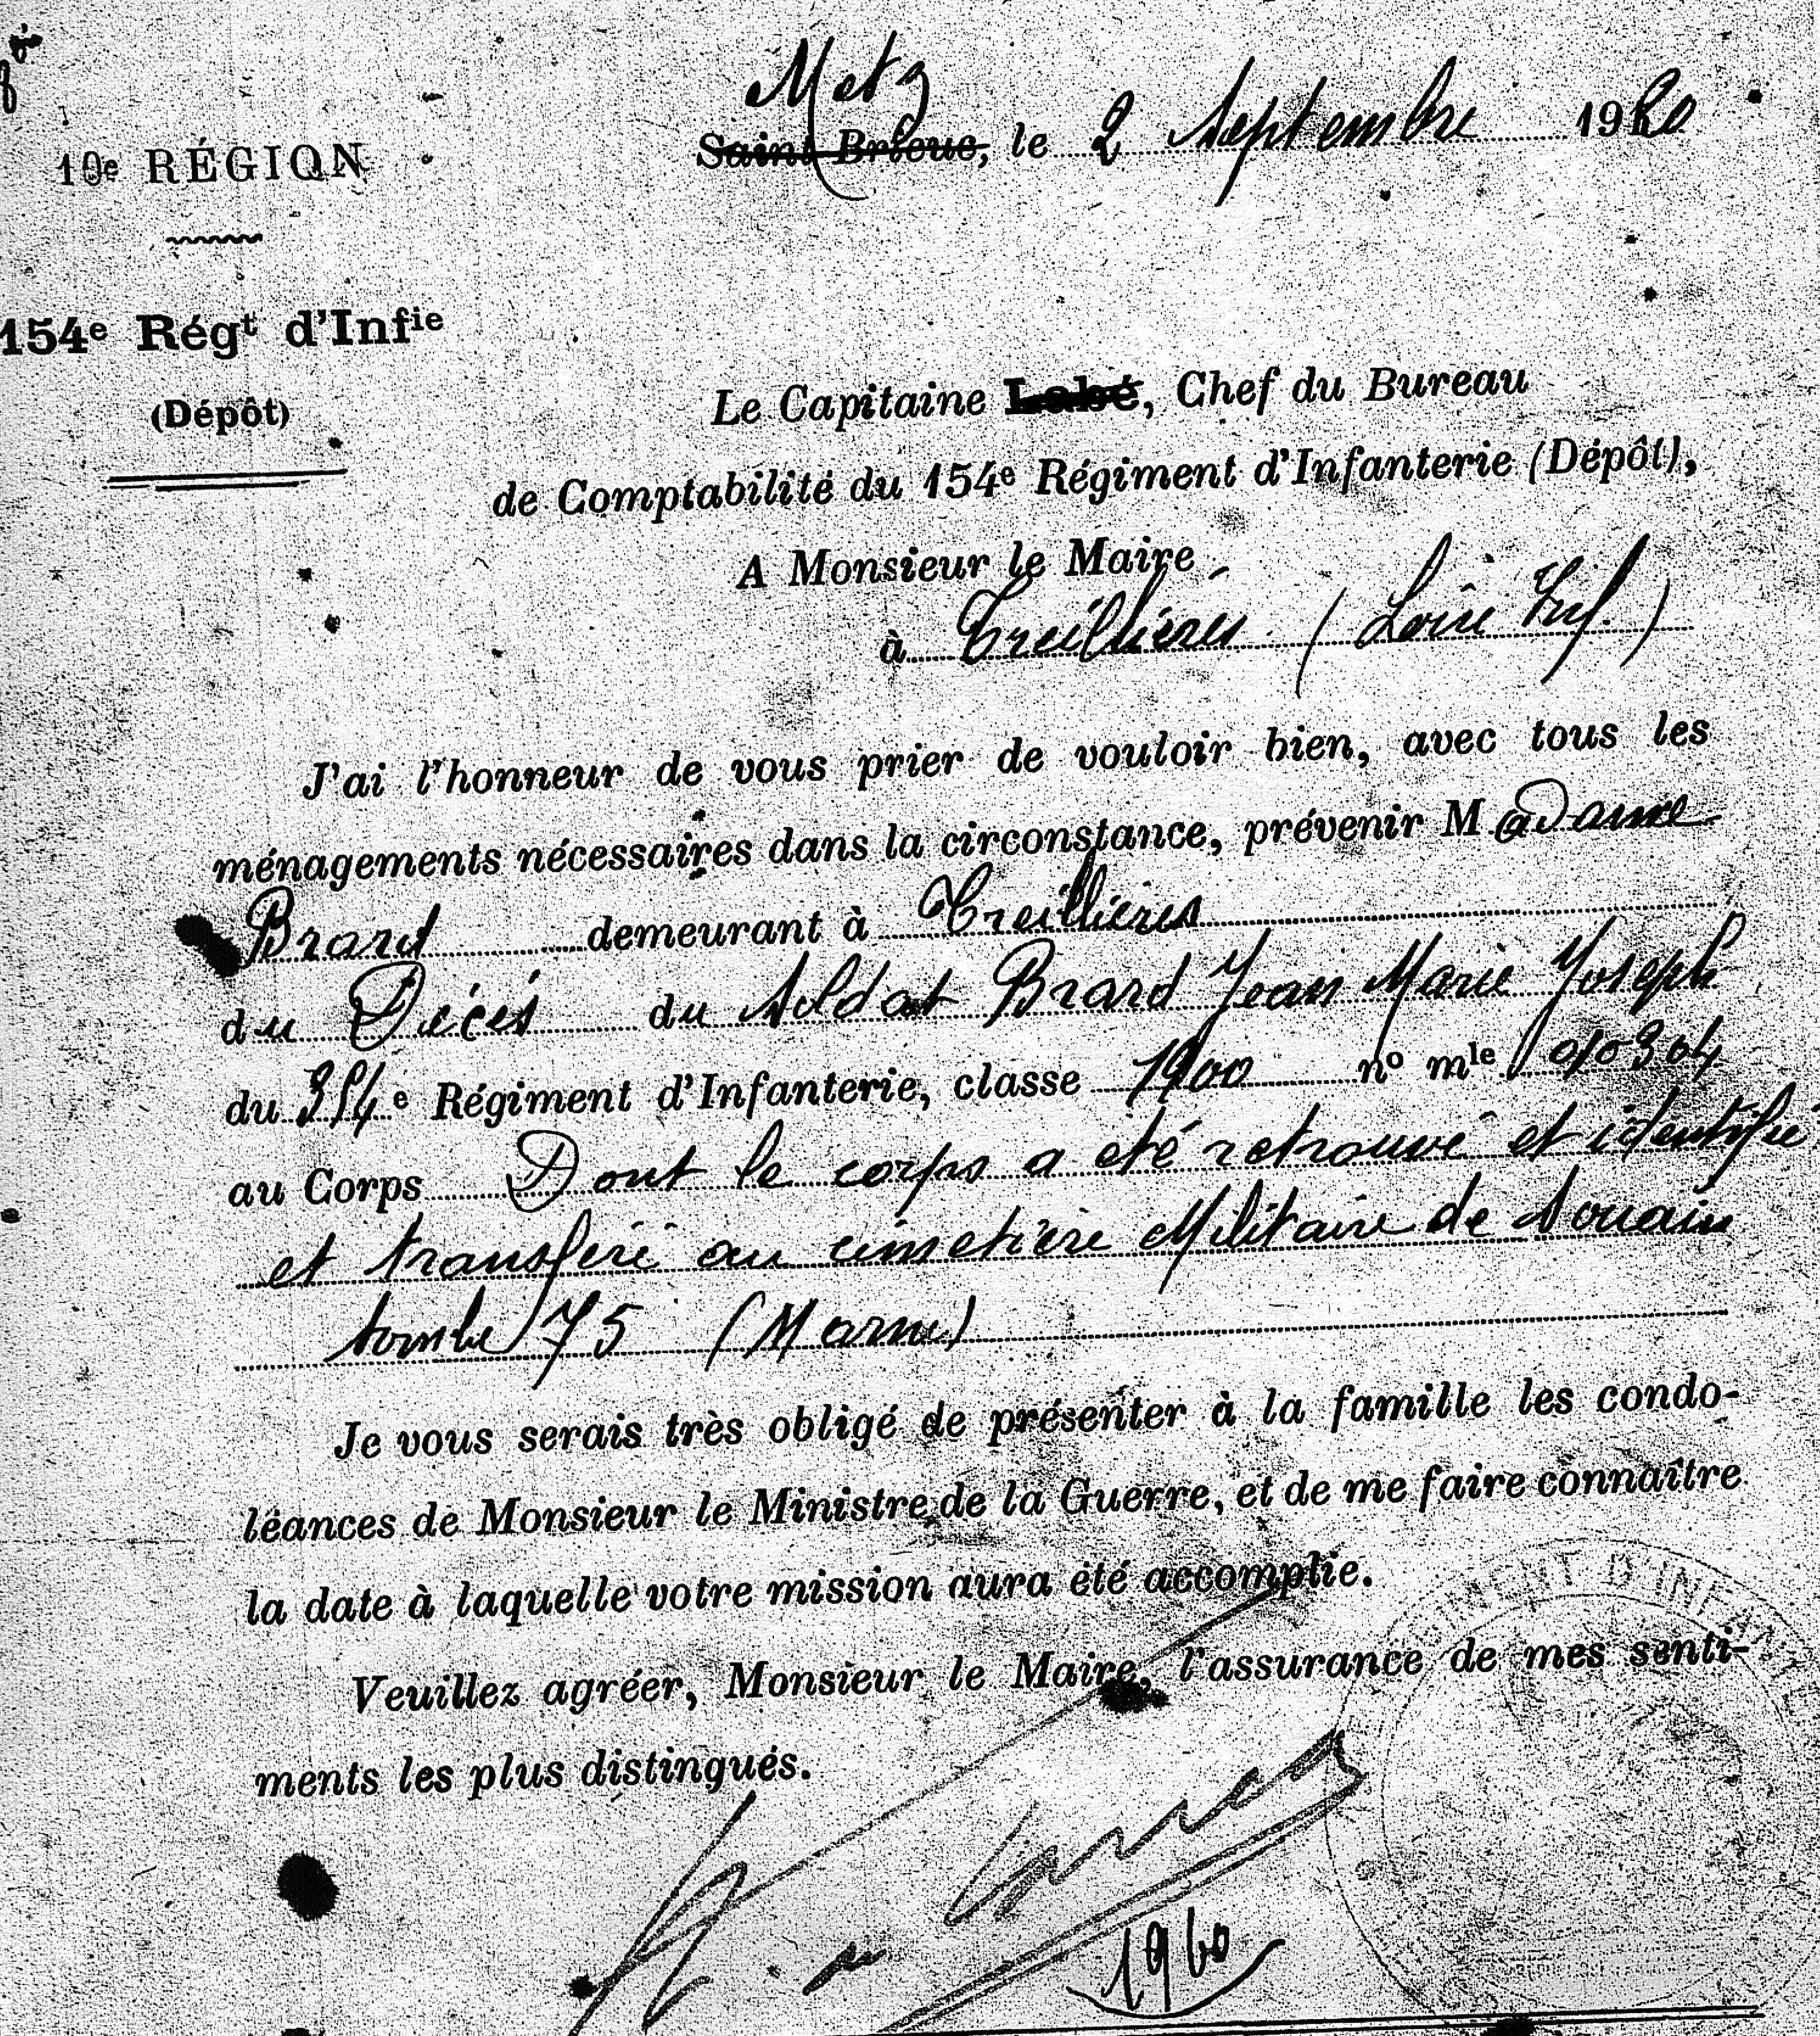 Metz
Saint-Brieuc, le 2 Septembre 1920
10e RÉGION
154e Régt d'Infie
(Dépôt)
Le Capitaine Labé, Chef du Bureau
de Comptabilité du 154e Régiment d'Infanterie (Dépôt),
A Monsieur le Maire
à Treillières (Loire Inf.)
J'ai l'honneur de vous prier de vouloir bien, avec tous les
ménagements nécessaires dans la circonstance, prévenir Madame
Brard demeurant à Treillières
du Décés du Soldat Brard Jean Marie Joseph
du 354e Régiment d'Infanterie, classe 1900 no mle 010304
au Corps Dont le corps a été retrouvé et identifié
et transféré au cimetière Militaire de Souain
tombe 75 (Marne)
Je vous serais très obligé de présenter à la famille les condo-
léances de Monsieur le Ministre de la Guerre, et de me faire connaître
la date à laquelle votre mission aura été accomplie.
Veuillez agréer, Monsieur le Maire, l'assurance de mes senti-
ments les plus distingués.
1960